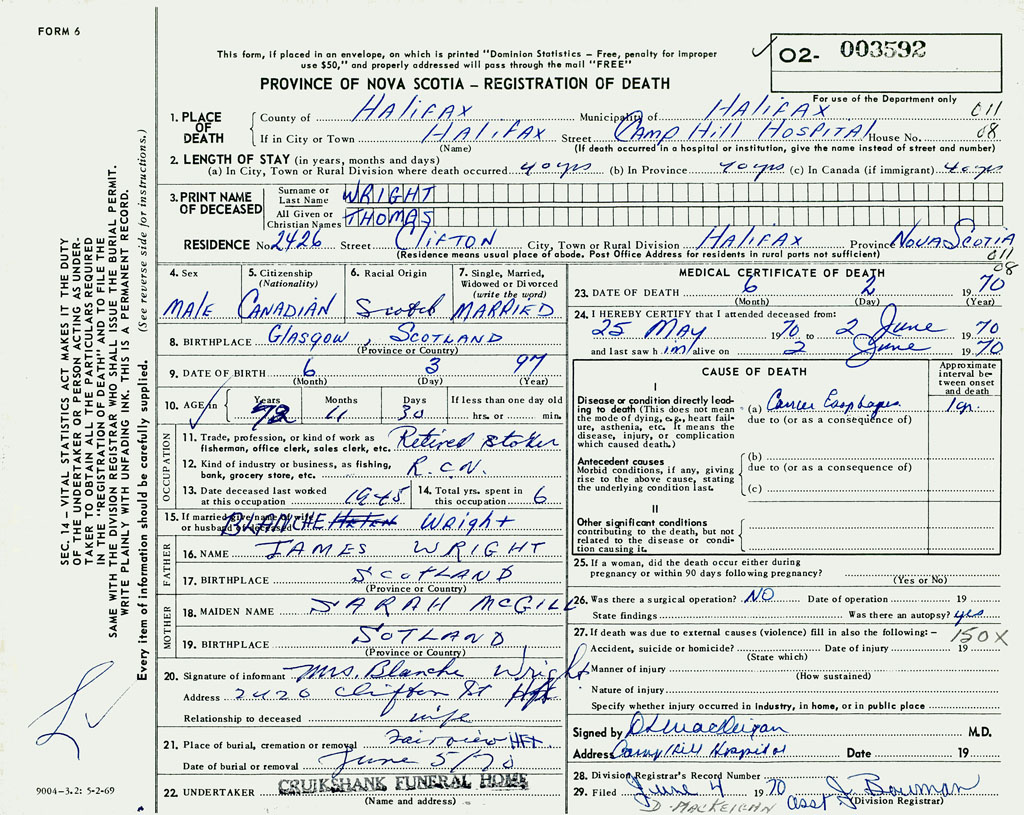 FORM 6
This form, if placed in an envelope, on which is printed "Dominion Statistics – Free, penalty for improper
use $50," and properly addressed will pass through the mail "FREE"
PROVINCE OF NOVA SCOTIA – REGISTRATION OF DEATH
O2- 003592
For use of the Department only
1. PLACE OF DEATH
County of HALIFAX Municipality of HALIFAX 011
If in City or Town HALIFAX Street CAMP HILL HOSPITAL House No. 08
(Name) (If death occurred in a hospital or institution, give the name instead of street and number)
2. LENGTH OF STAY (in years, months and days)
(a) In City, Town or Rural Division where death occurred 40 yrs (b) In Province 40 yrs (c) In Canada (if immigrant) 40 yrs
3. PRINT NAME OF DECEASED
Surname or Last Name WRIGHT
All Given or Christian Names THOMAS
RESIDENCE No. 2426 Street CLIFTON City, Town or Rural Division HALIFAX Province NOVA SCOTIA
(Residence means usual place of abode. Post Office Address for residents in rural parts not sufficient) 011
08
4. Sex
MALE
5. Citizenship
(Nationality)
CANADIAN
6. Racial Origin
Scotch
7. Single, Married,
Widowed or Divorced
(write the word)
MARRIED
8. BIRTHPLACE GLASGOW, SCOTLAND
(Province or Country)
9. DATE OF BIRTH 6 3 97
(Month) (Day) (Year)
10. AGE in Years 72 Months 11 Days 30 If less than one day old
hrs. or min.
OCCUPATION
11. Trade, profession, or kind of work as
fisherman, office clerk, sales clerk, etc. Retired Stoker
12. Kind of industry or business, as fishing,
bank, grocery store, etc. R.C.N.
13. Date deceased last worked
at this occupation 1945
14. Total yrs. spent in
this occupation 6
15. If married give name of wife
or husband of deceased BLANCHE Wright
FATHER
16. NAME JAMES WRIGHT
17. BIRTHPLACE SCOTLAND
(Province or Country)
MOTHER
18. MAIDEN NAME SARAH MCGILL
19. BIRTHPLACE SOTLAND
(Province or Country)
20. Signature of informant Mrs. Blanche Wright
Address 2426 Clifton St Hfx
Relationship to deceased wife
21. Place of burial, cremation or removal Fairview HFX
Date of burial or removal June 5/70
22. UNDERTAKER CRUIKSHANK FUNERAL HOME
(Name and address)
MEDICAL CERTIFICATE OF DEATH
23. DATE OF DEATH 6 2 1970
(Month) (Day) (Year)
24. I HEREBY CERTIFY that I attended deceased from:
25 May 1970 to 2 June 1970
and last saw him alive on 2 June 1970
CAUSE OF DEATH
Approximate
interval be-
tween onset
and death
I
Disease or condition directly lead-
ing to death (This does not mean
the mode of dying, e.g., heart fail-
ure, asthenia, etc. It means the
disease, injury, or complication
which caused death.)
(a) Cancer Esophagus 1 yr.
due to (or as a consequence of)
Antecedent causes
Morbid conditions, if any, giving
rise to the above cause, stating
the underlying condition last.
(b)
due to (or as a consequence of)
(c)
II
Other significant conditions
contributing to the death, but not
related to the disease or condi-
tion causing it.
25. If a woman, did the death occur either during
pregnancy or within 90 days following pregnancy?
(Yes or No)
26. Was there a surgical operation? NO Date of operation 19
State findings Was there an autopsy? yes
27. If death was due to external causes (violence) fill in also the following: – 150X
Accident, suicide or homicide? Date of injury 19
(State which)
Manner of injury
(How sustained)
Nature of injury
Specify whether injury occurred in industry, in home, or in public place
Signed by D L MacKeigan M.D.
Address Camp Hill Hospital Date 19
28. Division Registrar's Record Number
29. Filed June 4 1970 Asst J. Bowman
(Division Registrar)
D. MACKEIGAN
SEC. 14 – VITAL STATISTICS ACT MAKES IT THE DUTY
OF THE UNDERTAKER OR PERSON ACTING AS UNDER-
TAKER TO OBTAIN ALL THE PARTICULARS REQUIRED
IN THE "REGISTRATION OF DEATH" AND TO FILE THE
SAME WITH THE DIVISION REGISTRAR WHO SHALL ISSUE THE BURIAL PERMIT.
WRITE PLAINLY WITH UNFADING INK. THIS IS A PERMANENT RECORD.
Every item of information should be carefully supplied. (See reverse side for instructions.)
9004-3.2: 5-2-69